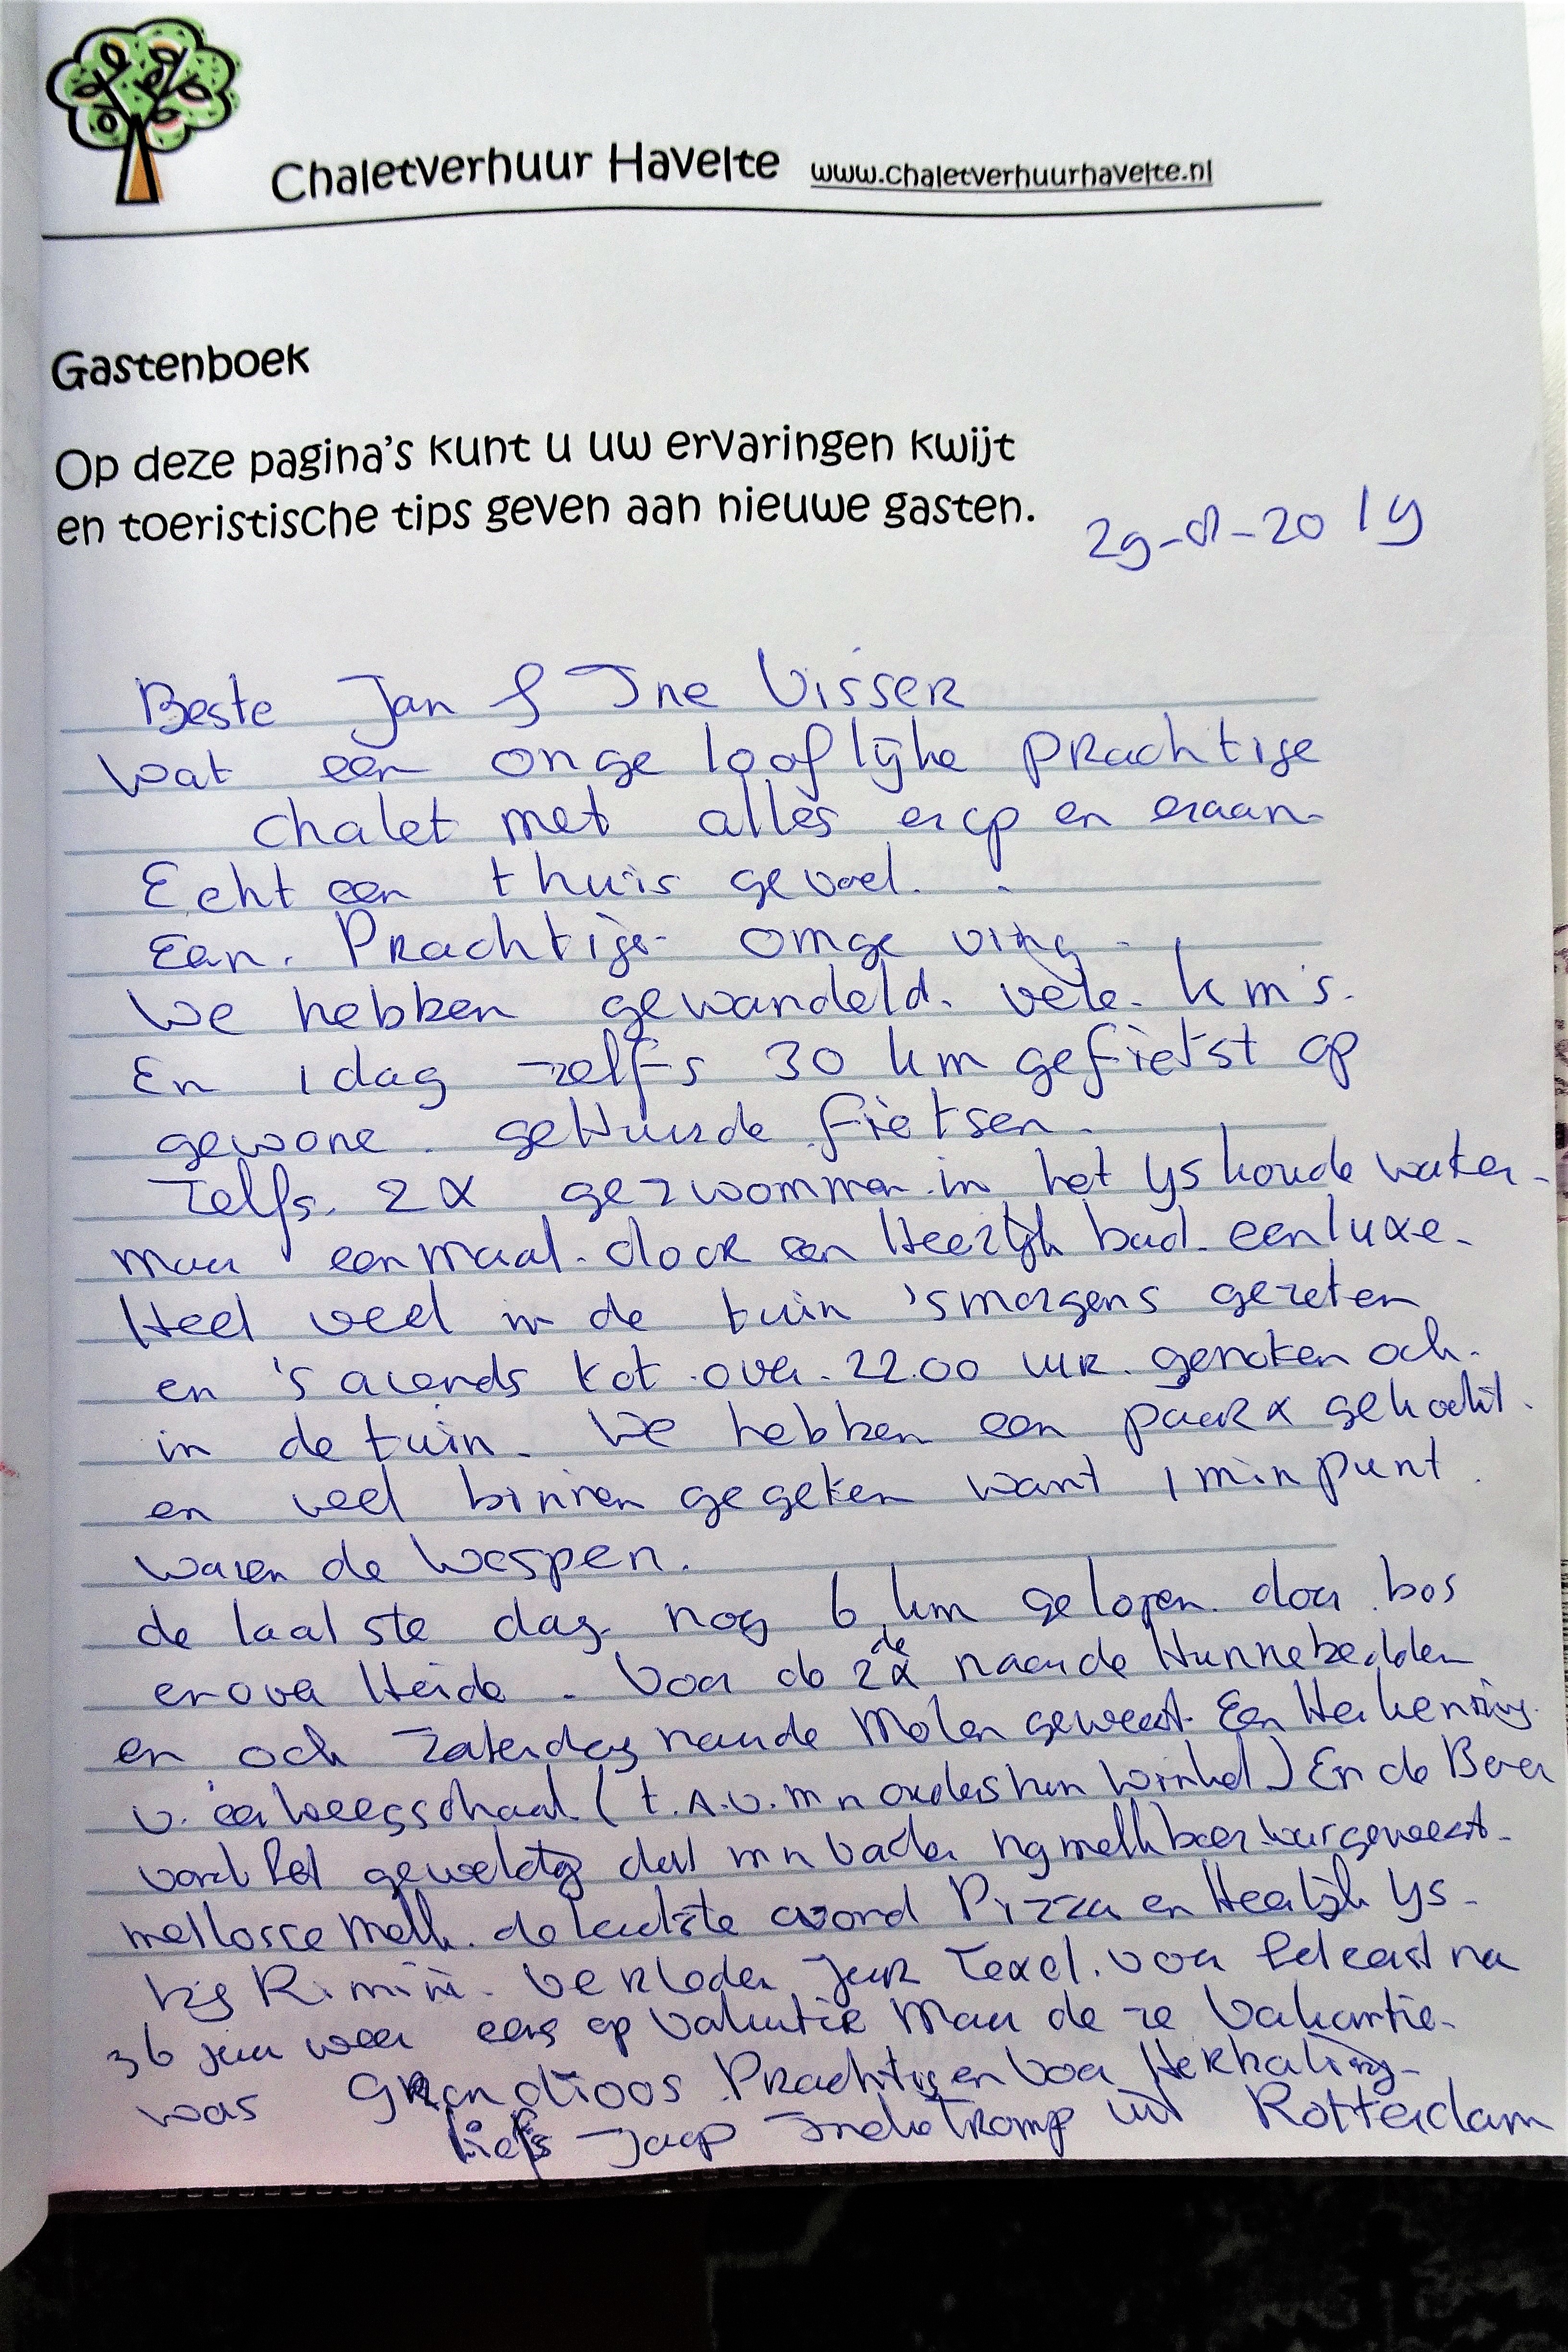 Chaletverhuur Havelte www.chaletverhuurhavelte.nl
Gastenboek
Op deze pagina's kunt u uw ervaringen kwijt
en toeristische tips geven aan nieuwe gasten.
29-8-2019
Beste Jan & Ine Visser
Wat een ongelooflijke prachtige
chalet met alles erop en eraan.
Echt een thuis gevoel.
Een Prachtige omgeving.
We hebben gewandeld. vele km's.
En 1 dag zelfs 30 km gefietst op
gewone gehuurde fietsen.
Zelfs 2x gezwommen in het yskoude water.
maar eenmaal. ook een Heerlijk bad. een luxe.
Heel veel in de tuin 'smorgens gezeten
en 's avonds tot over 22.00 uur genoten ook.
in de tuin. We hebben een paar x gekookt.
en veel binnen gegeten want 1 minpunt
waren de Wespen.
de laatste dag nog 6 km gelopen door bos
en over Heide. Voor de 2de x naar de Hunnebedden
en ook Zaterdag naar de Molen geweest. Een Herkenning
v. een weegschaal (t.a.v. mn ouders hun winkel) En de Boer
vond het geweldig dat mn vader melkboer was geweest.
met losse melk. de laatste avond Pizza en Heerlijk ys.
bij Rimini. Verleden jaar Texel. voor het eerst na
36 jaar weer eens op vakantie maar deze Vakantie.
was Grandioos Prachtig en voor Herhaling.
liefs Jaap Tromp uit Rotterdam